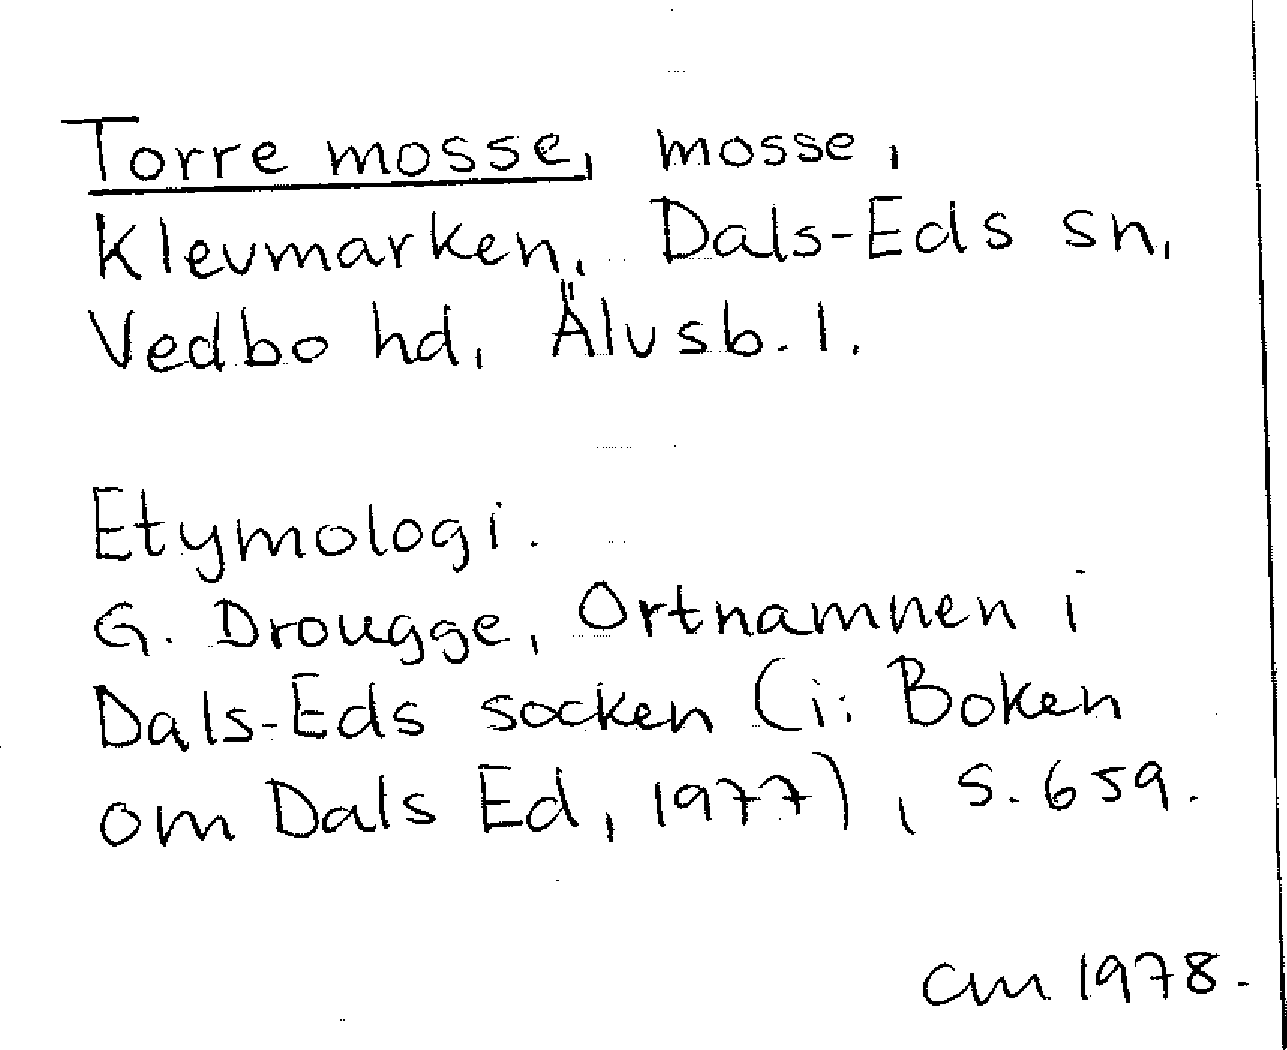 Torre mosse, mosse,
Klevmarken, Dals-Eds sn,
Vedbo hd, Älvsb. l.
Etymologi.
G. Drougge, Ortnamnen i
Dals-Eds socken (i: Boken
om Dals Ed, 1977), s. 659.
CM 1978.